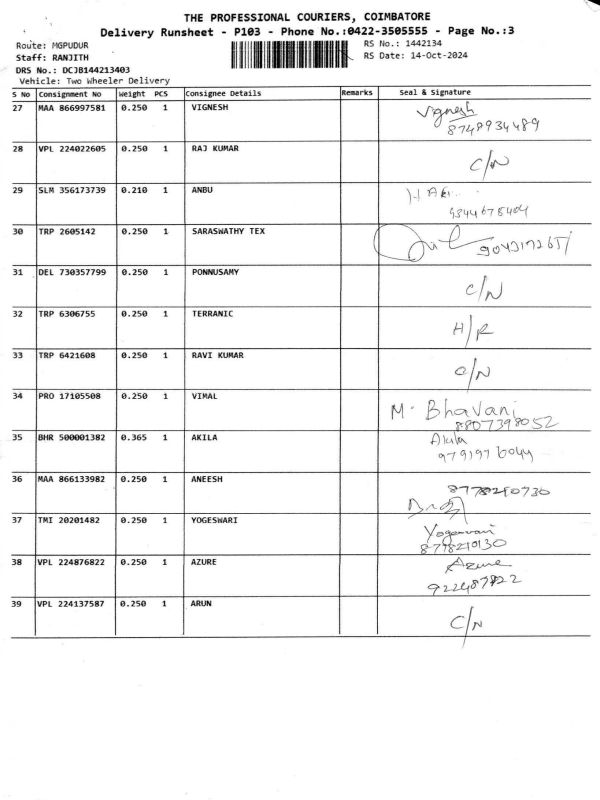 THE PROFESSIONAL COURIERS, COIMBATORE
Delivery Runsheet - P103 - Phone No.:0422-3505555 - Page No.:3
Route: MGPUDUR RS No.: 1442134
Staff: RANJITH RS Date: 14-Oct-2024
DRS No.: DCJB144213403
Vehicle: Two Wheeler Delivery
S No Consignment No Weight PCS Consignee Details Remarks Seal & Signature
27 MAA 866997581 0.250 1 VIGNESH Vignesh
8748934489
28 VPL 224022605 0.250 1 RAJ KUMAR C/N
29 SLM 356173739 0.210 1 ANBU
9344678404
30 TRP 2605142 0.250 1 SARASWATHY TEX
31 DEL 730357799 0.250 1 PONNUSAMY C/N
32 TRP 6306755 0.250 1 TERRANIC H/R
33 TRP 6421608 0.250 1 RAVI KUMAR C/N
34 PRO 17105508 0.250 1 VIMAL M. Bhavani
8807398052
35 BHR 500001382 0.365 1 AKILA Akila
9791976044
36 MAA 866133982 0.250 1 ANEESH 8778210730
37 TMI 20201482 0.250 1 YOGESWARI Yogeswari
8778210130
38 VPL 224876822 0.250 1 AZURE Azure
39 VPL 224137587 0.250 1 ARUN C/N